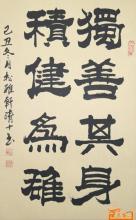 獨善其身
積健為雄
己丑冬月